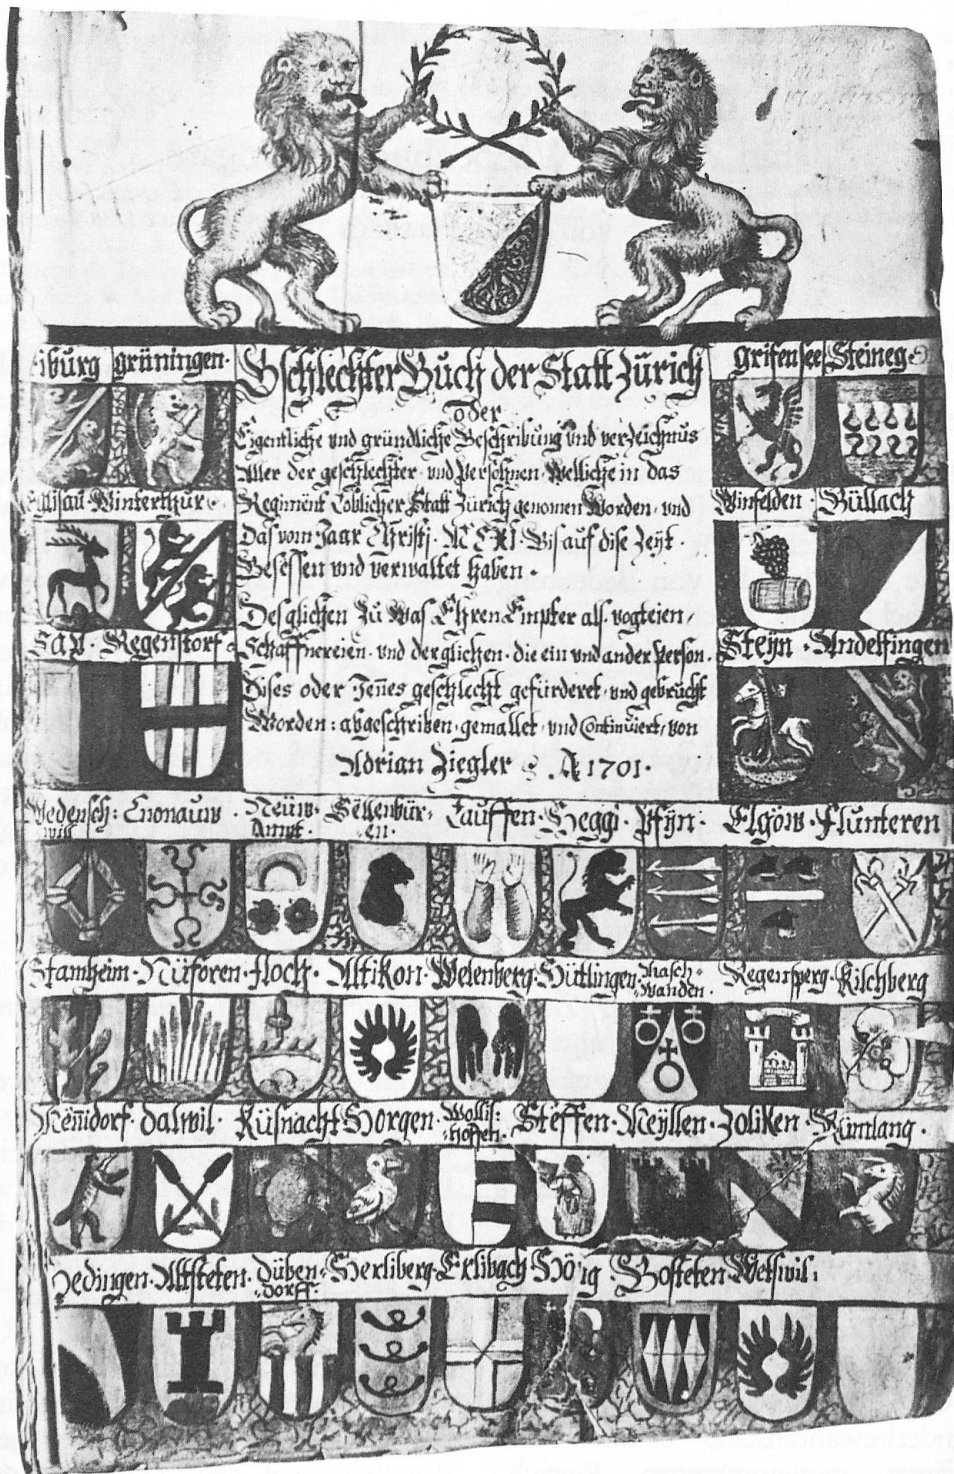 iburg grüningen·
Gschlechter Buch der Statt Zürich
grifensee Steineg·
oder
Eigentliche und gründliche Beschribung und verzeichnus
Aller der geschlechter· und Persohnen· Welliche in das
Regiment Loblicher Statt Zürich genomen Worden· und
Das vom Jaar Christi· M CXI· Bis auf dise Zeÿt·
Besessen und verwaltet haben·
Desglichen Zu Was Ehren Empter als· vogteien,
Schaffnereien· und derglichen· die ein und ander Person·
Dises oder Jenes geschlecht gefürderet· und gebrucht
Worden: abgeschriben· gemallet· und Continuiert· von
Adrian Ziegler A 1701·
Winterthur
Winfelden· Büllach
Sax· Regenstorf
Steÿn· Andelfingen
Wedensch: Cnonauw· Neüw· Sellenbür= Lauffen· Heggi· Pfÿn· Elgöw· Flunteren
wil Ampt· en·
Stamheim· Nüforen· Floch· Altikon· Welenberg· Hütlingen· Masch= Regensperg· Kilchberg
wanden·
Dalwil· Küsnacht Horgen· Wollis: Steffen· Meÿllen· Zoliken· Rümlang·
hoffen·
Hedingen· Altsteten· Düben= Herliberg· Erlibach Höng· Bosteten· Wetswil:
dorff·